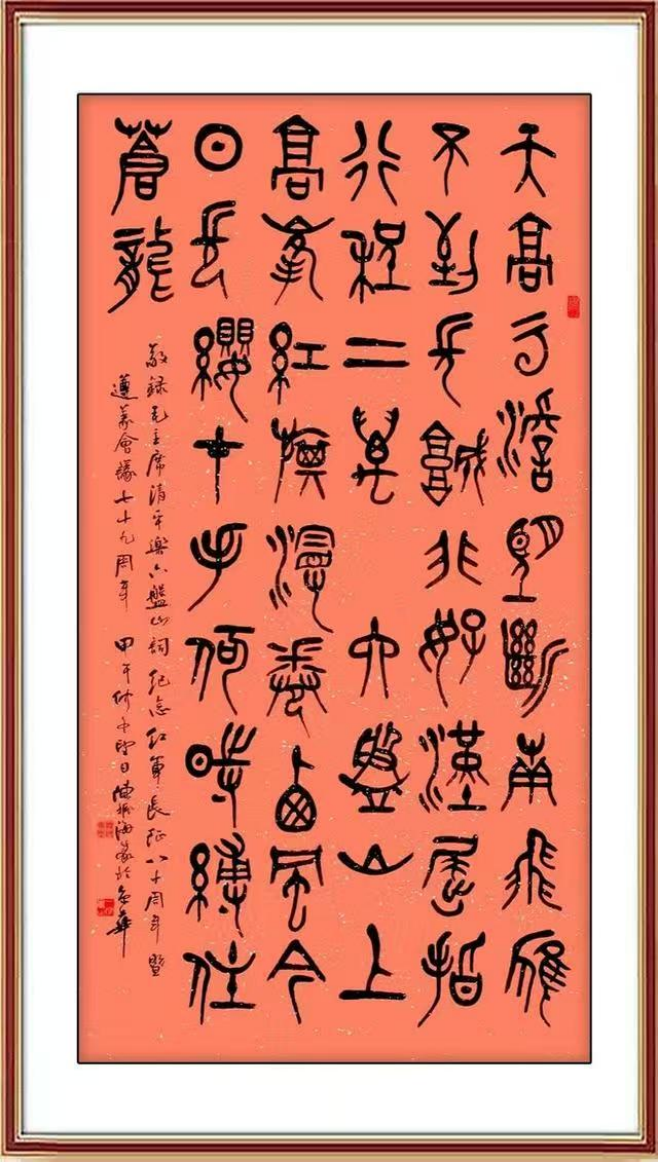 天高云澹望斷南飛雁
不到長城非好漢屈指
行程二萬六盤山上
高峰紅旗漫卷西風今
日長纓在手何時縛住
蒼龍
敬録毛主席清平樂六盤山詞紀念紅軍長征八十周年暨
遵義會議七十九周年 甲午仲冬望日 振海篆於京華